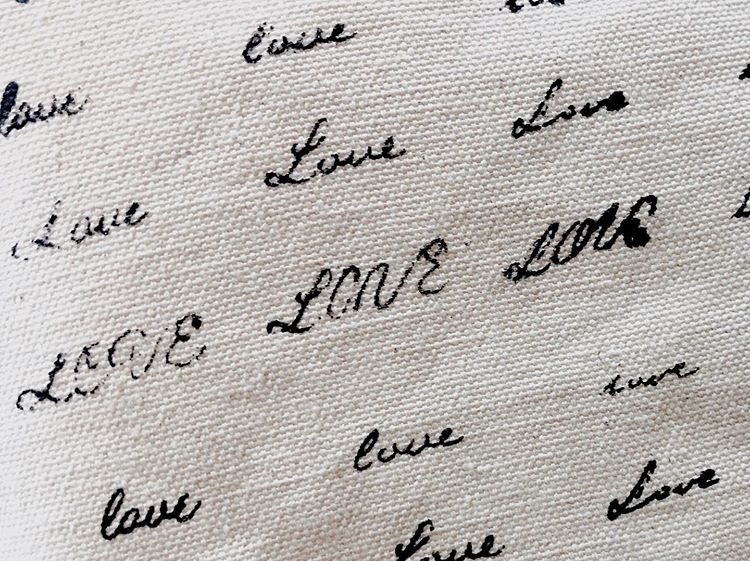 love
love
Love Love
Love
LOVE LOVE LOVE
love
love
love Love
Love